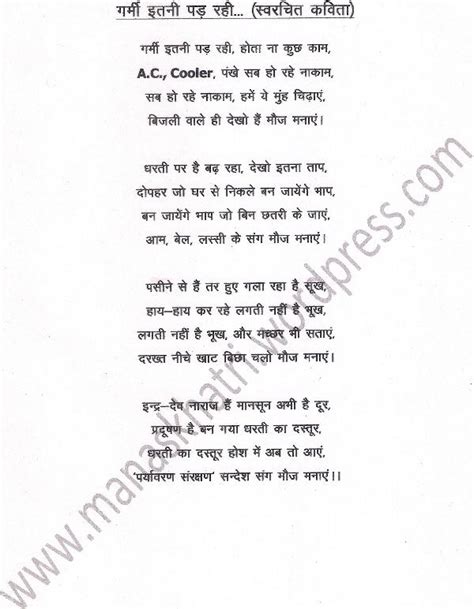 गर्मी इतनी पड़ रही... (स्वरचित कविता)
गर्मी इतनी पड़ रही, होता ना कुछ काम,
A.C., Cooler, पंखे सब हो रहे नाकाम,
सब हो रहे नाकाम, हमें ये मुंह चिढ़ाएं,
बिजली वाले ही देखो हैं मौज मनाएं।
धरती पर है बढ़ रहा, देखो इतना ताप,
दोपहर जो घर से निकले बन जायेंगे भाप,
बन जायेंगे भाप जो बिन छतरी के जाएं,
आम, बेल, लस्सी के संग मौज मनाएं।
पसीने से हैं तर हुए गला रहा है सूख,
हाय–हाय कर रहे लगती नहीं है भूख,
लगती नहीं है भूख, और मच्छर भी सताएं,
दरख्त नीचे खाट बिछा चलो मौज मनाएं।
इन्द्र–देव नाराज हैं मानसून अभी है दूर,
प्रदूषण है बन गया धरती का दस्तूर,
धरती का दस्तूर होश में अब तो आएं,
'पर्यावरण संरक्षण' सन्देश संग मौज मनाएं।।
www.manaskhatri.wordpress.com